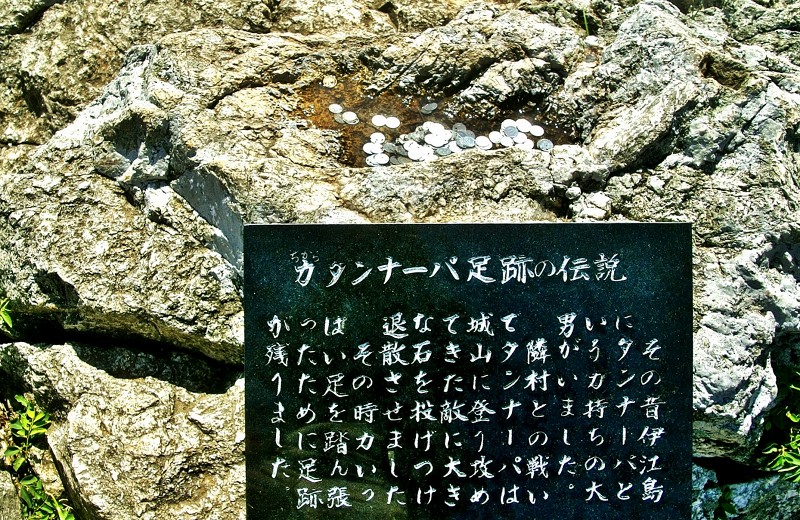 ちから
力タンナーパ足跡の伝説
その昔伊江島
にタンナーパと
いう力持ちの大
男がいました。
隣村との戦い
でタンナーパは
城山に登り攻め
てきた敵に大き
な石を投げつけ
退散させました
その時力いっ
ぱい足を踏ん張
ったために足跡
が残りました。